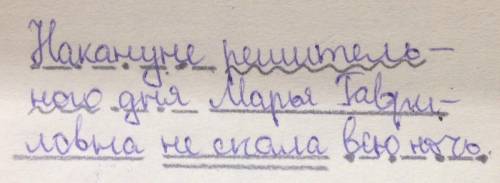 Накануне решитель-
ного дня Марья Гаври-
ловна не спала всю ночь.